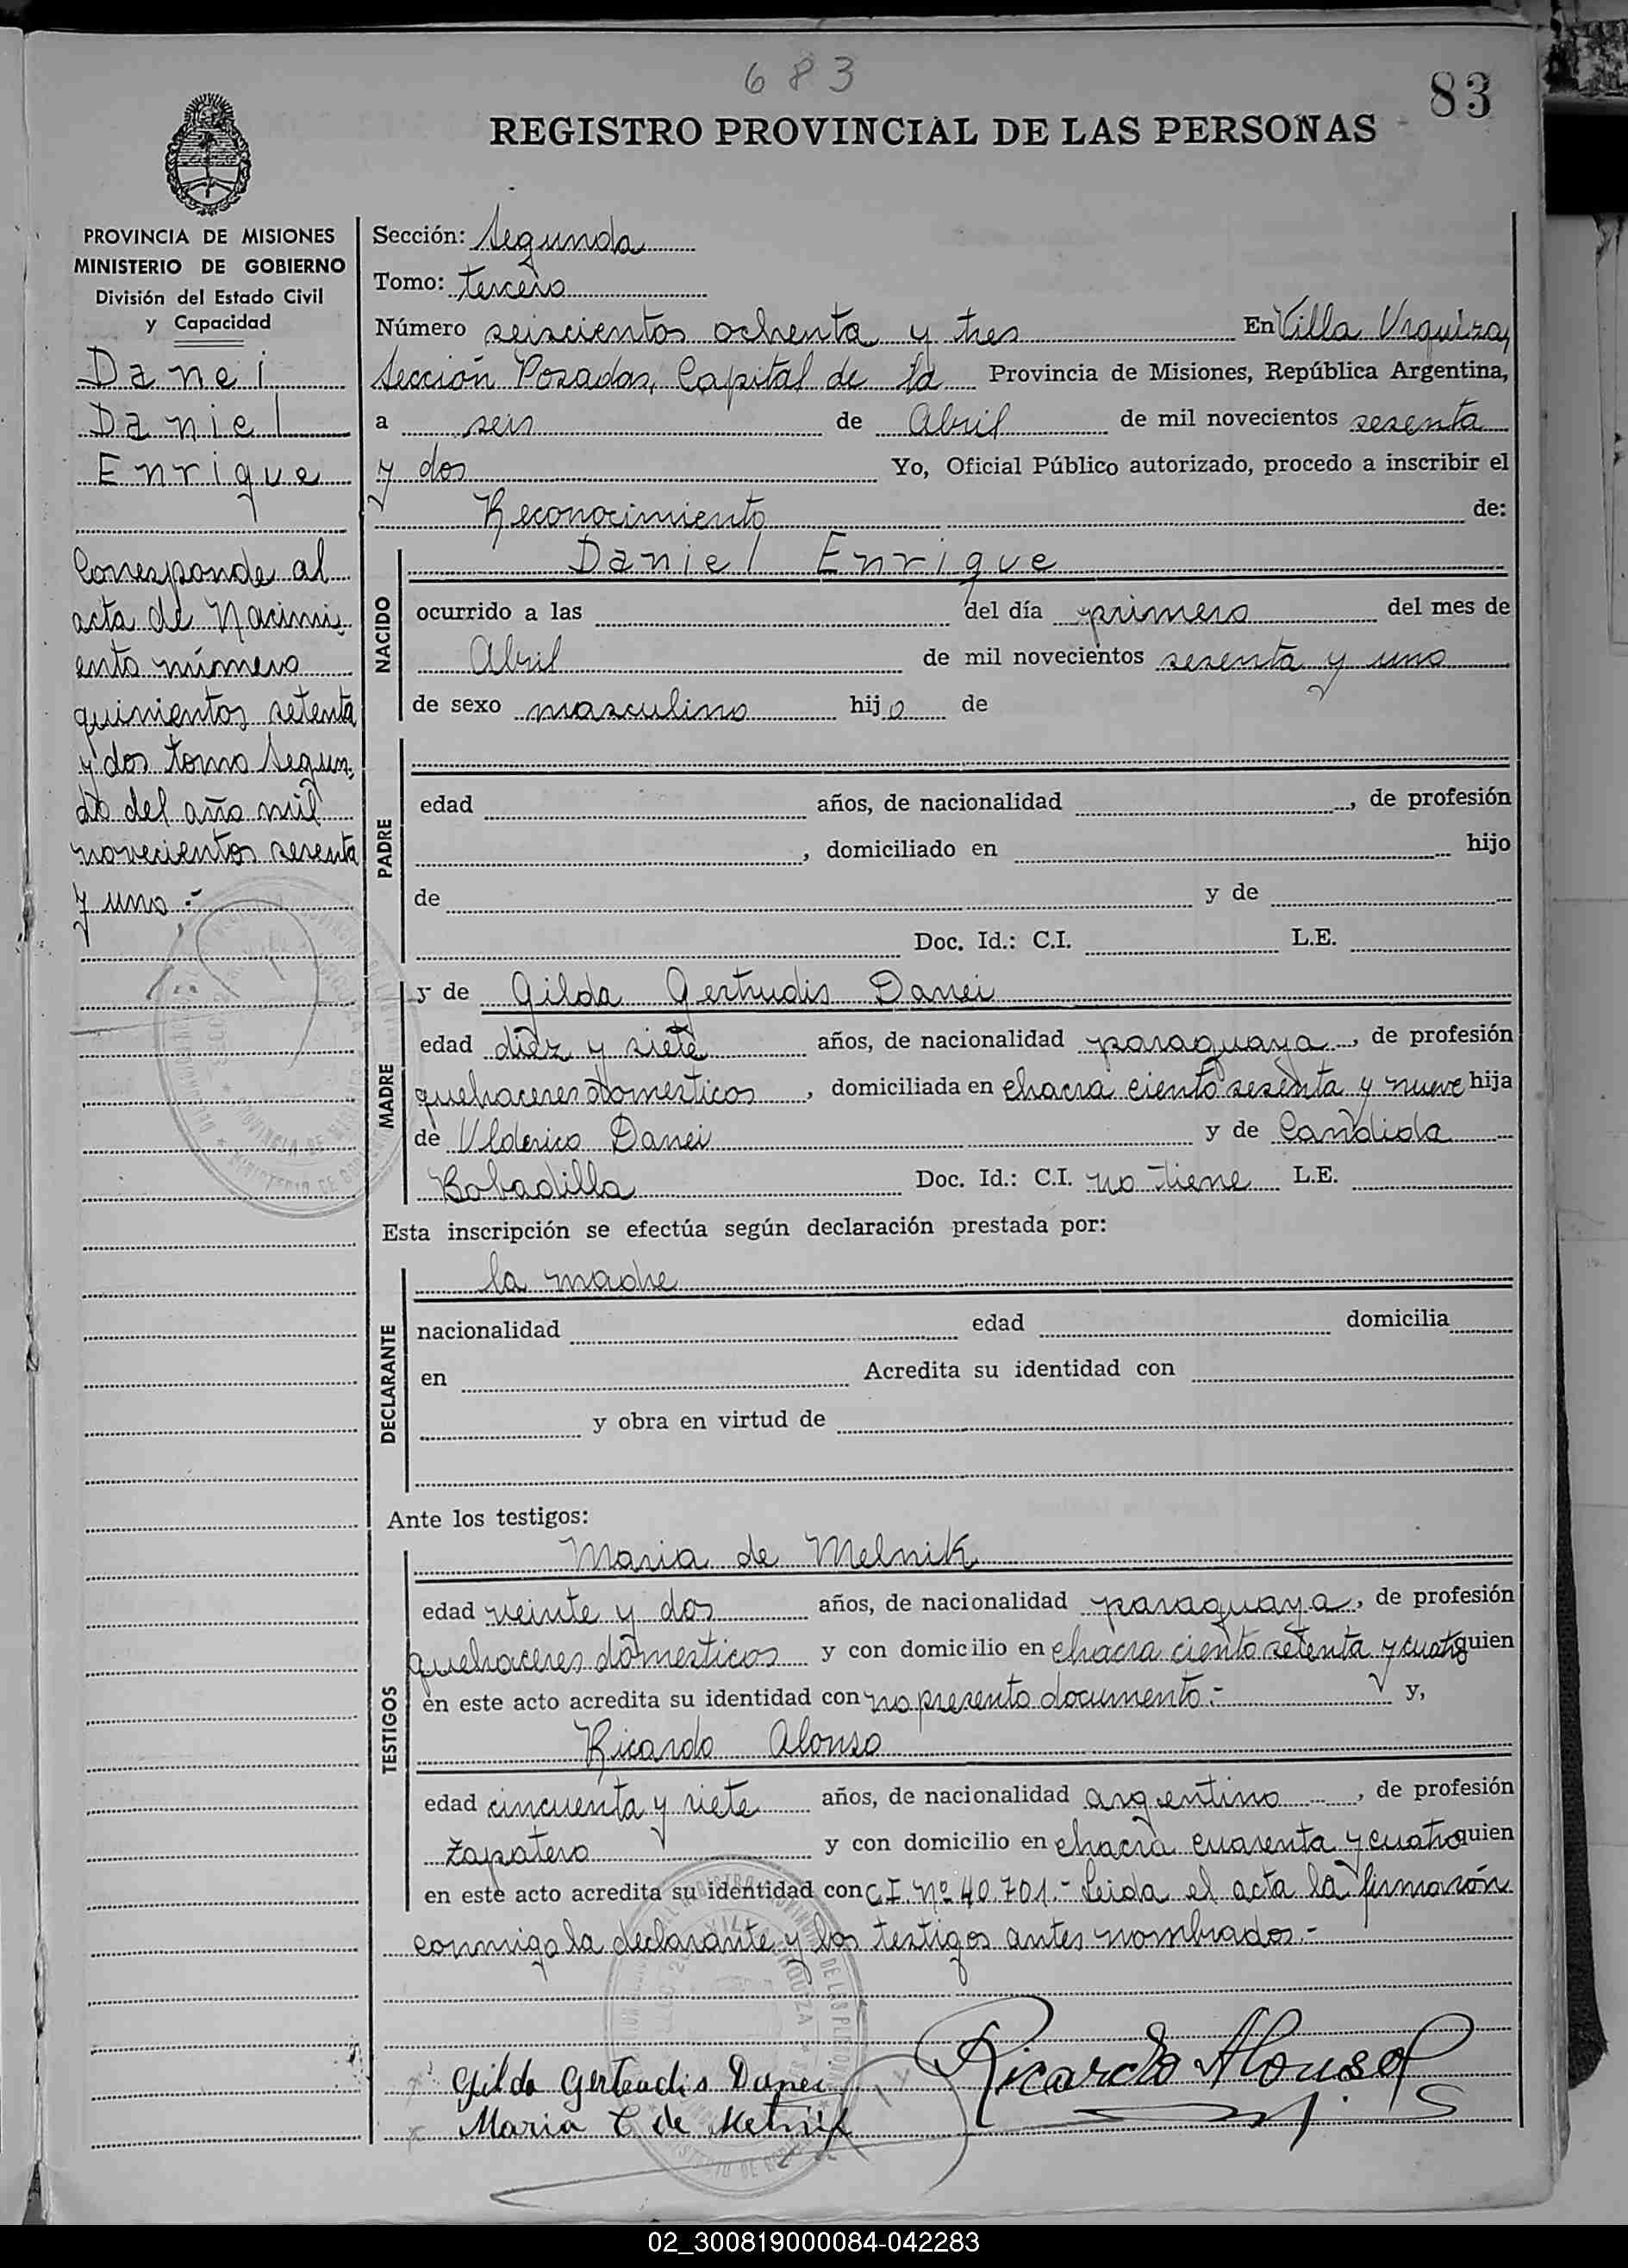 683
83
REGISTRO PROVINCIAL DE LAS PERSONAS
PROVINCIA DE MISIONES
MINISTERIO DE GOBIERNO
División del Estado Civil
y Capacidad
Danei
Daniel
Enrique
Corresponde al
acta de Nacimi-
ento número
quinientos setenta
y dos tomo Segun-
do del año mil
novecientos sesenta
y uno.-
Sección: Segunda
Tomo: tercero
Número seiscientos ochenta y tres En Villa Urquiza,
Sección Posadas, Capital de la Provincia de Misiones, República Argentina,
a seis de Abril de mil novecientos sesenta
y dos Yo, Oficial Público autorizado, procedo a inscribir el
Reconocimiento de:
NACIDO
Daniel Enrique
ocurrido a las del día primero del mes de
Abril de mil novecientos sesenta y uno
de sexo masculino hijo de
PADRE
edad años, de nacionalidad , de profesión
, domiciliado en hijo
de y de
Doc. Id.: C.I. L.E.
MADRE
y de Gilda Gertrudis Danei
edad diez y siete años, de nacionalidad paraguaya, de profesión
quehaceres domesticos, domiciliada en chacra ciento sesenta y nueve hija
de Ulderico Danei y de Candida
Bobadilla Doc. Id.: C.I. no tiene L.E.
Esta inscripción se efectúa según declaración prestada por:
DECLARANTE
la madre
nacionalidad edad domicilia
en Acredita su identidad con
y obra en virtud de
Ante los testigos:
TESTIGOS
Maria de Melnik
edad veinte y dos años, de nacionalidad paraguaya, de profesión
quehaceres domesticos y con domicilio en chacra ciento setenta y cuatro quien
en este acto acredita su identidad con no presento documento.- y,
Ricardo Alonso
edad cincuenta y siete años, de nacionalidad argentino, de profesión
zapatero y con domicilio en chacra cuarenta y cuatro quien
en este acto acredita su identidad con C.I. Nº 40.701.- Leida el acta la firmarón
conmigo la declarante y los testigos antes nombrados.-
Gilda Gertrudis Danei
Ricardo Alonso
Maria C de Melnik
02_300819000084-042283